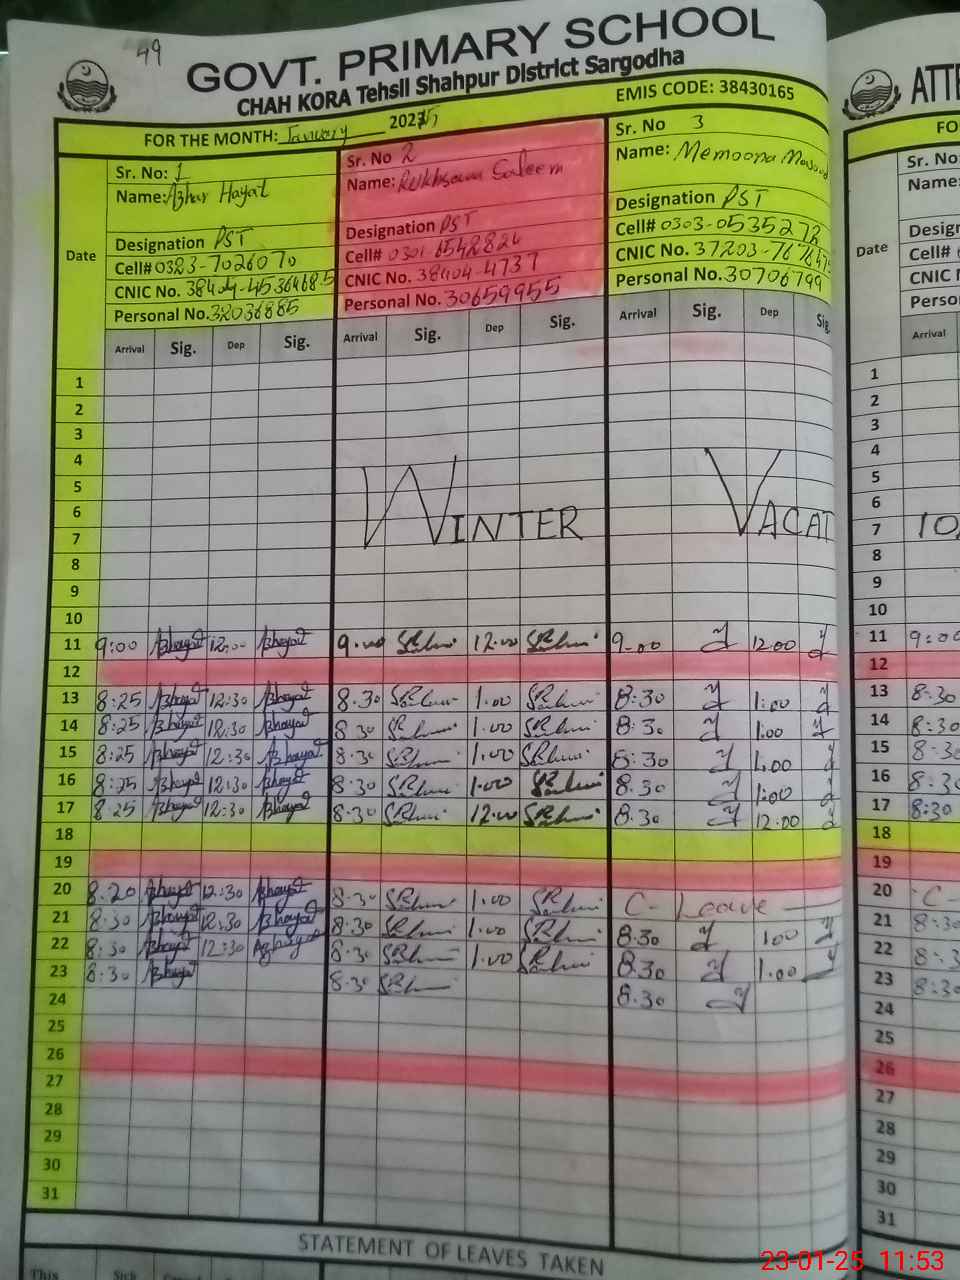 49
GOVT. PRIMARY SCHOOL
CHAH KORA Tehsil Shahpur District Sargodha
EMIS CODE: 38430165
FOR THE MONTH: January 2025
Sr. No: 1
Name: Azhar Hayat
Designation PST
Cell# 0323-7026070
CNIC No. 38404-45364685
Personal No. 32036885
Sr. No 2
Name: Rukhsana Saleem
Designation PST
Cell# 0301-6542824
CNIC No. 38404-4737
Personal No. 30659955
Sr. No 3
Name: Memoona
Designation PST
Cell# 0303-0535272
CNIC No. 37203-767647
Personal No. 30706799
Date Arrival Sig. Dep Sig. Arrival Sig. Dep Sig. Arrival Sig. Dep Sig.
1
2
3
4
5
6
7
WINTER VACAT
8
9
10
11 9:00 Azhayat 12:00 Azhayat 9.00 12.00 9-00 12.00
12
13 8:25 Azhayat 12:30 Azhayat 8.30 1.00 8:30 1:00
14 8:25 Azhayat 12:30 Azhayat 8.30 1.00 8:30 1:00
15 8:25 Azhayat 12:30 Azhayat 8.30 1.00 8:30 1.00
16 8:25 Azhayat 12:30 Azhayat 8.30 1.00 8.30 1:00
17 8:25 Azhayat 12:30 Azhayat 8.30 12.00 8.30 12:00
18
19
20 8:20 Azhayat 12:30 Azhayat 8.30 1.00 C- Leave
21 8:30 Azhayat 12:30 Azhayat 8.30 1.00 8.30 1.00
22 8:30 Azhayat 12:30 Azhayat 8.30 1.00 8.30 1.00
23 8:30 Azhayat 8.30 8.30
24
25
26
27
28
29
30
31
STATEMENT OF LEAVES TAKEN
This Sick
ATTE
FO
Sr. No
Name:
Design
Cell#
CNIC
Perso
Date Arrival
1
2
3
4
5
6
7 10
8
9
10
11 9:00
12
13 8:30
14 8:30
15 8:30
16 8:30
17 8:30
18
19
20 C-
21 8:30
22 8:3
23 8:30
24
25
26
27
28
29
30
31
23-01-25 11:53